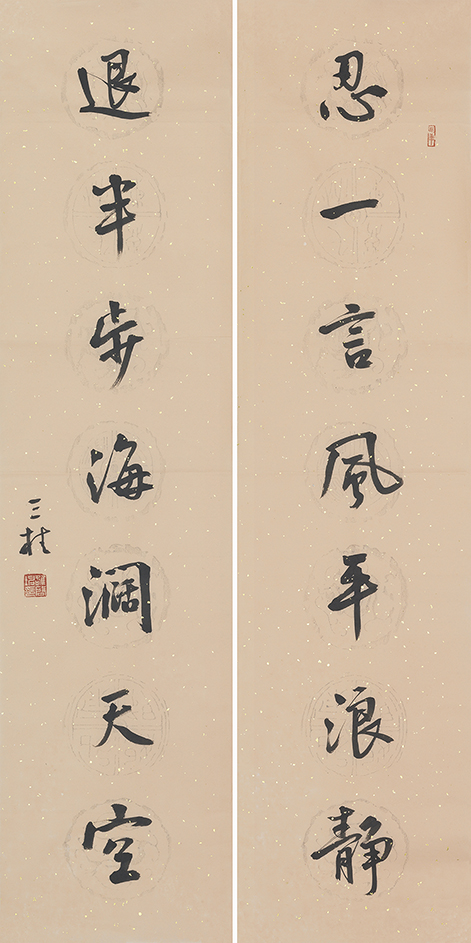 忍一言風平浪靜
退半步海濶天空
三桂